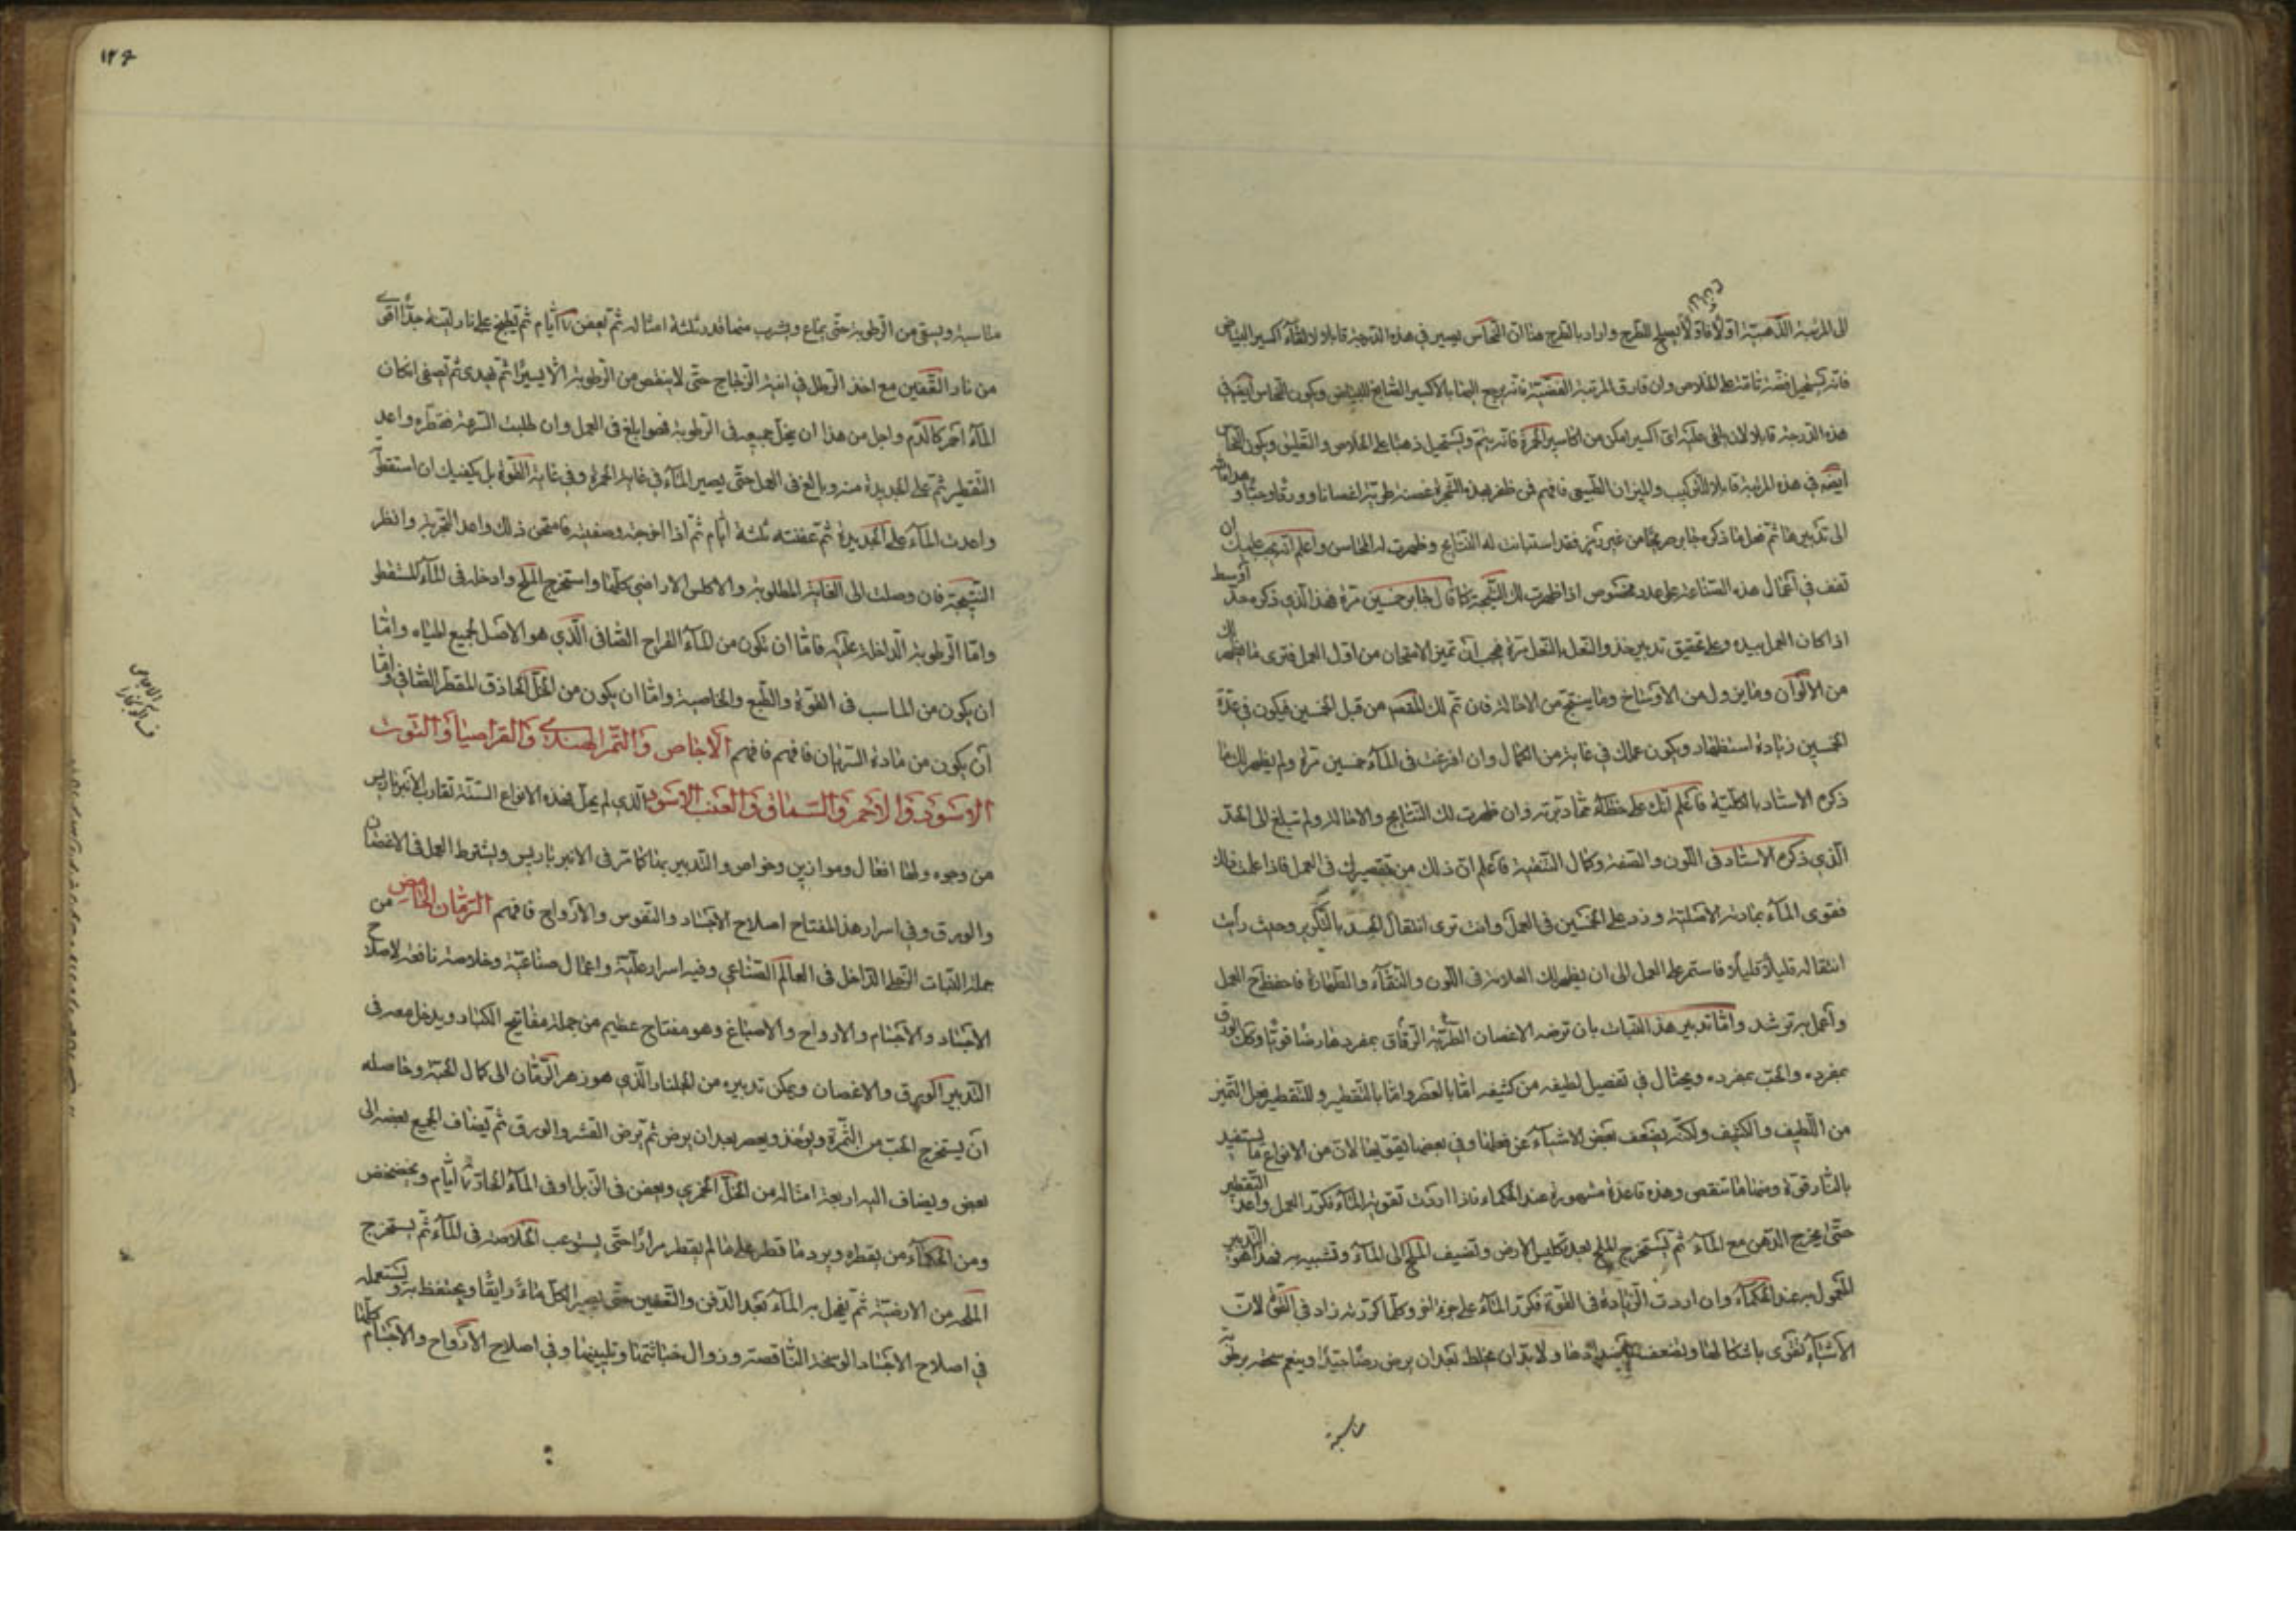 الى المرتبة الذهبية اولا فاولا يصلح للطرح واراد بالطرح هنا ان النحاس يصير في هذه الدرجة قابلا لالقاء اكسير البياض
فانه يستحيل فضة ثابتة على الخلاص وان فارق المرتبة الفضية فانه يرجع اليها بالاكسير الصابغ للبياض ويكون النحاس ايضا في
هذه الدرجة قابلا لان يلقى عليه اى اكسير امكن من اكاسير الحمرة فانه يتم ويستحيل ذهبا على الخلاص والتعليق ويكون النحاس
ايضه في هذه المرتبة قابلا للتركيب والميزان الطبيعى فافهم فمن ظفر بهذه الشجرة غصنة طرية اغصانا وورقا وحبا و
الى تدبيرها ثم فعل ما ذكره جابر صريحا من غير رمز فقد استبانت له النتايج وظهرت له المحاسن واعلم انه يجب عليك ان
تقف في اعمال هذه الصناعة على عدد مخصوص اذا ظهرت لك النتيجة كما قال جابر خمسين مرة فهذا الذي ذكره حد اوسط
اذا كان العمل بيده وعلى تحقيق تدبير حذو النعل بالنعل مرة فيجب ان تميز الامتحان من اول العمل فترى ما يظهر لك
من الالوان وما يزول من الاوساخ وما ينتج من الاحالة فان تم لك المقصد من قبل الخمسين فيكون في عدة
الخمسين زيادة استظهار ويكون عملك في غاية من الكمال وان افرغت فى الماء خمسين مرة ولم يظهر لك ما
ذكره الاستاد بالكلية فاعلم انك على خطاء مما دبرته وان ظهرت لك النتايج والاحالة ولم تبلغ الى الحد
الذي ذكره الاستاد فى اللون والصفة وكمال التنقية فاعلم ان ذلك من تقصيرك في العمل فاذا علمت ذلك
فقوى الماء بمادته الاصلية وزد على الخمسين فى العمل وانت ترى انتقال الجسد بالتكرير وحيث رأيت
انتقاله قليلا قليلا فاستمر على العمل الى ان يظهر لك العلامة فى اللون والنقاء والطهارة فاحفظ ح العمل
واعمل به ترشد واما تدبير هذا النبات بان ترضه الاغصان الطرية الرقاق بمفردها رضا قويا وكك الورق
بمفرده والحب بمفرده ويحتال في تفصيل لطيفه من كثيفه اما بالعصر واما بالتقطير وللتقطير فعل التميز
من اللطيف والكثيف ولكنه يضعف بعض الاشياء عن فعلها وفي بعضها يقويها لان من الانواع ما يستفيد
بالنار قوة ومنها ما تنقص وهذه قاعدة مشهورة عند الحكماء فاذا اردت تقوية الماء فكرر العمل واعد التقطير
حتى يخرج الدهن مع الماء ثم تستخرج الملح بعد تكليس الارض وتضيف الملح الى الماء وتشببه به فهذا هو التدبير
المعول به عند الحكماء وان اردت الزيادة فى القوة فكرر الماء على جزء اخر وكلما كررته زاد في القوى لان
الاشياء تقوى باشكالها وتضعف باضدادها ولا بد ان يخلط بعد ان يرض رضا جيدا وينعم سحقه برطوبة
مناسبة
١٢٦
مناسبة ويسقى من الرطوبة حتى يماع ويشرب منها قدر ثلثة امثاله ثم يعفن ٣ ايام ثم يطبخ على نار لينة جدا اقوى
من نار التعفين مع اخذ الوصل في انية الزجاج حتى لا ينقص من الرطوبة الا يسيرا ثم يهدى ثم تصفى انكان
الماء احمر كالدم واجل من هذا ان يحل جميعه فى الرطوبة فهو ابلغ فى العمل وان طلبت السرعة فقطره واعد
التقطير ثم على الجديدة منه وبالغ فى العمل حتى يصير الماء في غاية الحمرة وفي غاية القوة بل يكفيك ان استقطرته
واعدت الماء على الجديدة ثم عفنته ثلثة ايام ثم اذا اخرجته وصفيته فامتحن ذلك واعد التجربة وانظر
النتيجة فان وصلت الى الغاية المطلوبة والا كلس الاراضي كلها واستخرج الملح وادخله فى الماء كلمستقطر
واما الرطوبة الداخلة عليه فاما ان تكون من الماء القراح الصافى الذي هو الاصل لجميع المياه واما
ان يكون من المناسب فى القوة والطبع والخاصية واما ان يكون من الخل الحاذق المقطر الصافي واما
ان يكون من مادة السريان فافهم فافهم الاجاص والتمر الهندى والقراصيا والتوت
الاسود والاحمر والسماق والعنب الاسود الذي لم يحل فهذه الانواع الستة تقارب الانبرباريس
من وجوه ولها افعال وموازين وخواص والتدبير بها كما مر فى الانبرباريس ويشترط العمل فى الاغصان
والورق وفي اسرار هذا المفتاح اصلاح الاجساد والنفوس والارواح فافهم الرمان الحامض من
جملة النبات الداخل فى العالم الصناعي وفيه اسرار علية واعمال صناعية وخلاصة نافعة لاصلاح
الاجساد والاجسام والارواح والاصباغ وهو مفتاح عظيم من جملة مفاتيح الكبار ويدخل معه فى
التدبير الورق والاغصان ويمكن تدبيره من الجلنار الذي هو زهر الرمان الى كمال الحبة وحاصله
ان يستخرج الحب من الثمرة ويؤخذ ويعصر بعد ان يرض ثم يرض القشر والورق ثم يضاف الجميع بعضه الى
بعض ويضاف اليه اربعة امثاله من الخل الخمري ويعفن فى الزبل او فى الماء الحار ٣ ايام ويخضخض
ومن الحكماء من يقطره ويرد ما قطر على ما لم يقطر مرارا حتى يستوعب الخلاصة فى الماء ثم يستخرج
الملح من الارضية ثم يحل به الماء بعد الدفن والتعفين حتى يصير الكل ماء رايقا ويحتفظ به ويستعمله
في اصلاح الاجساد الوسخة الناقصة وزوال خباثتها وتليينها وفي اصلاح الارواح والاجسام كلها